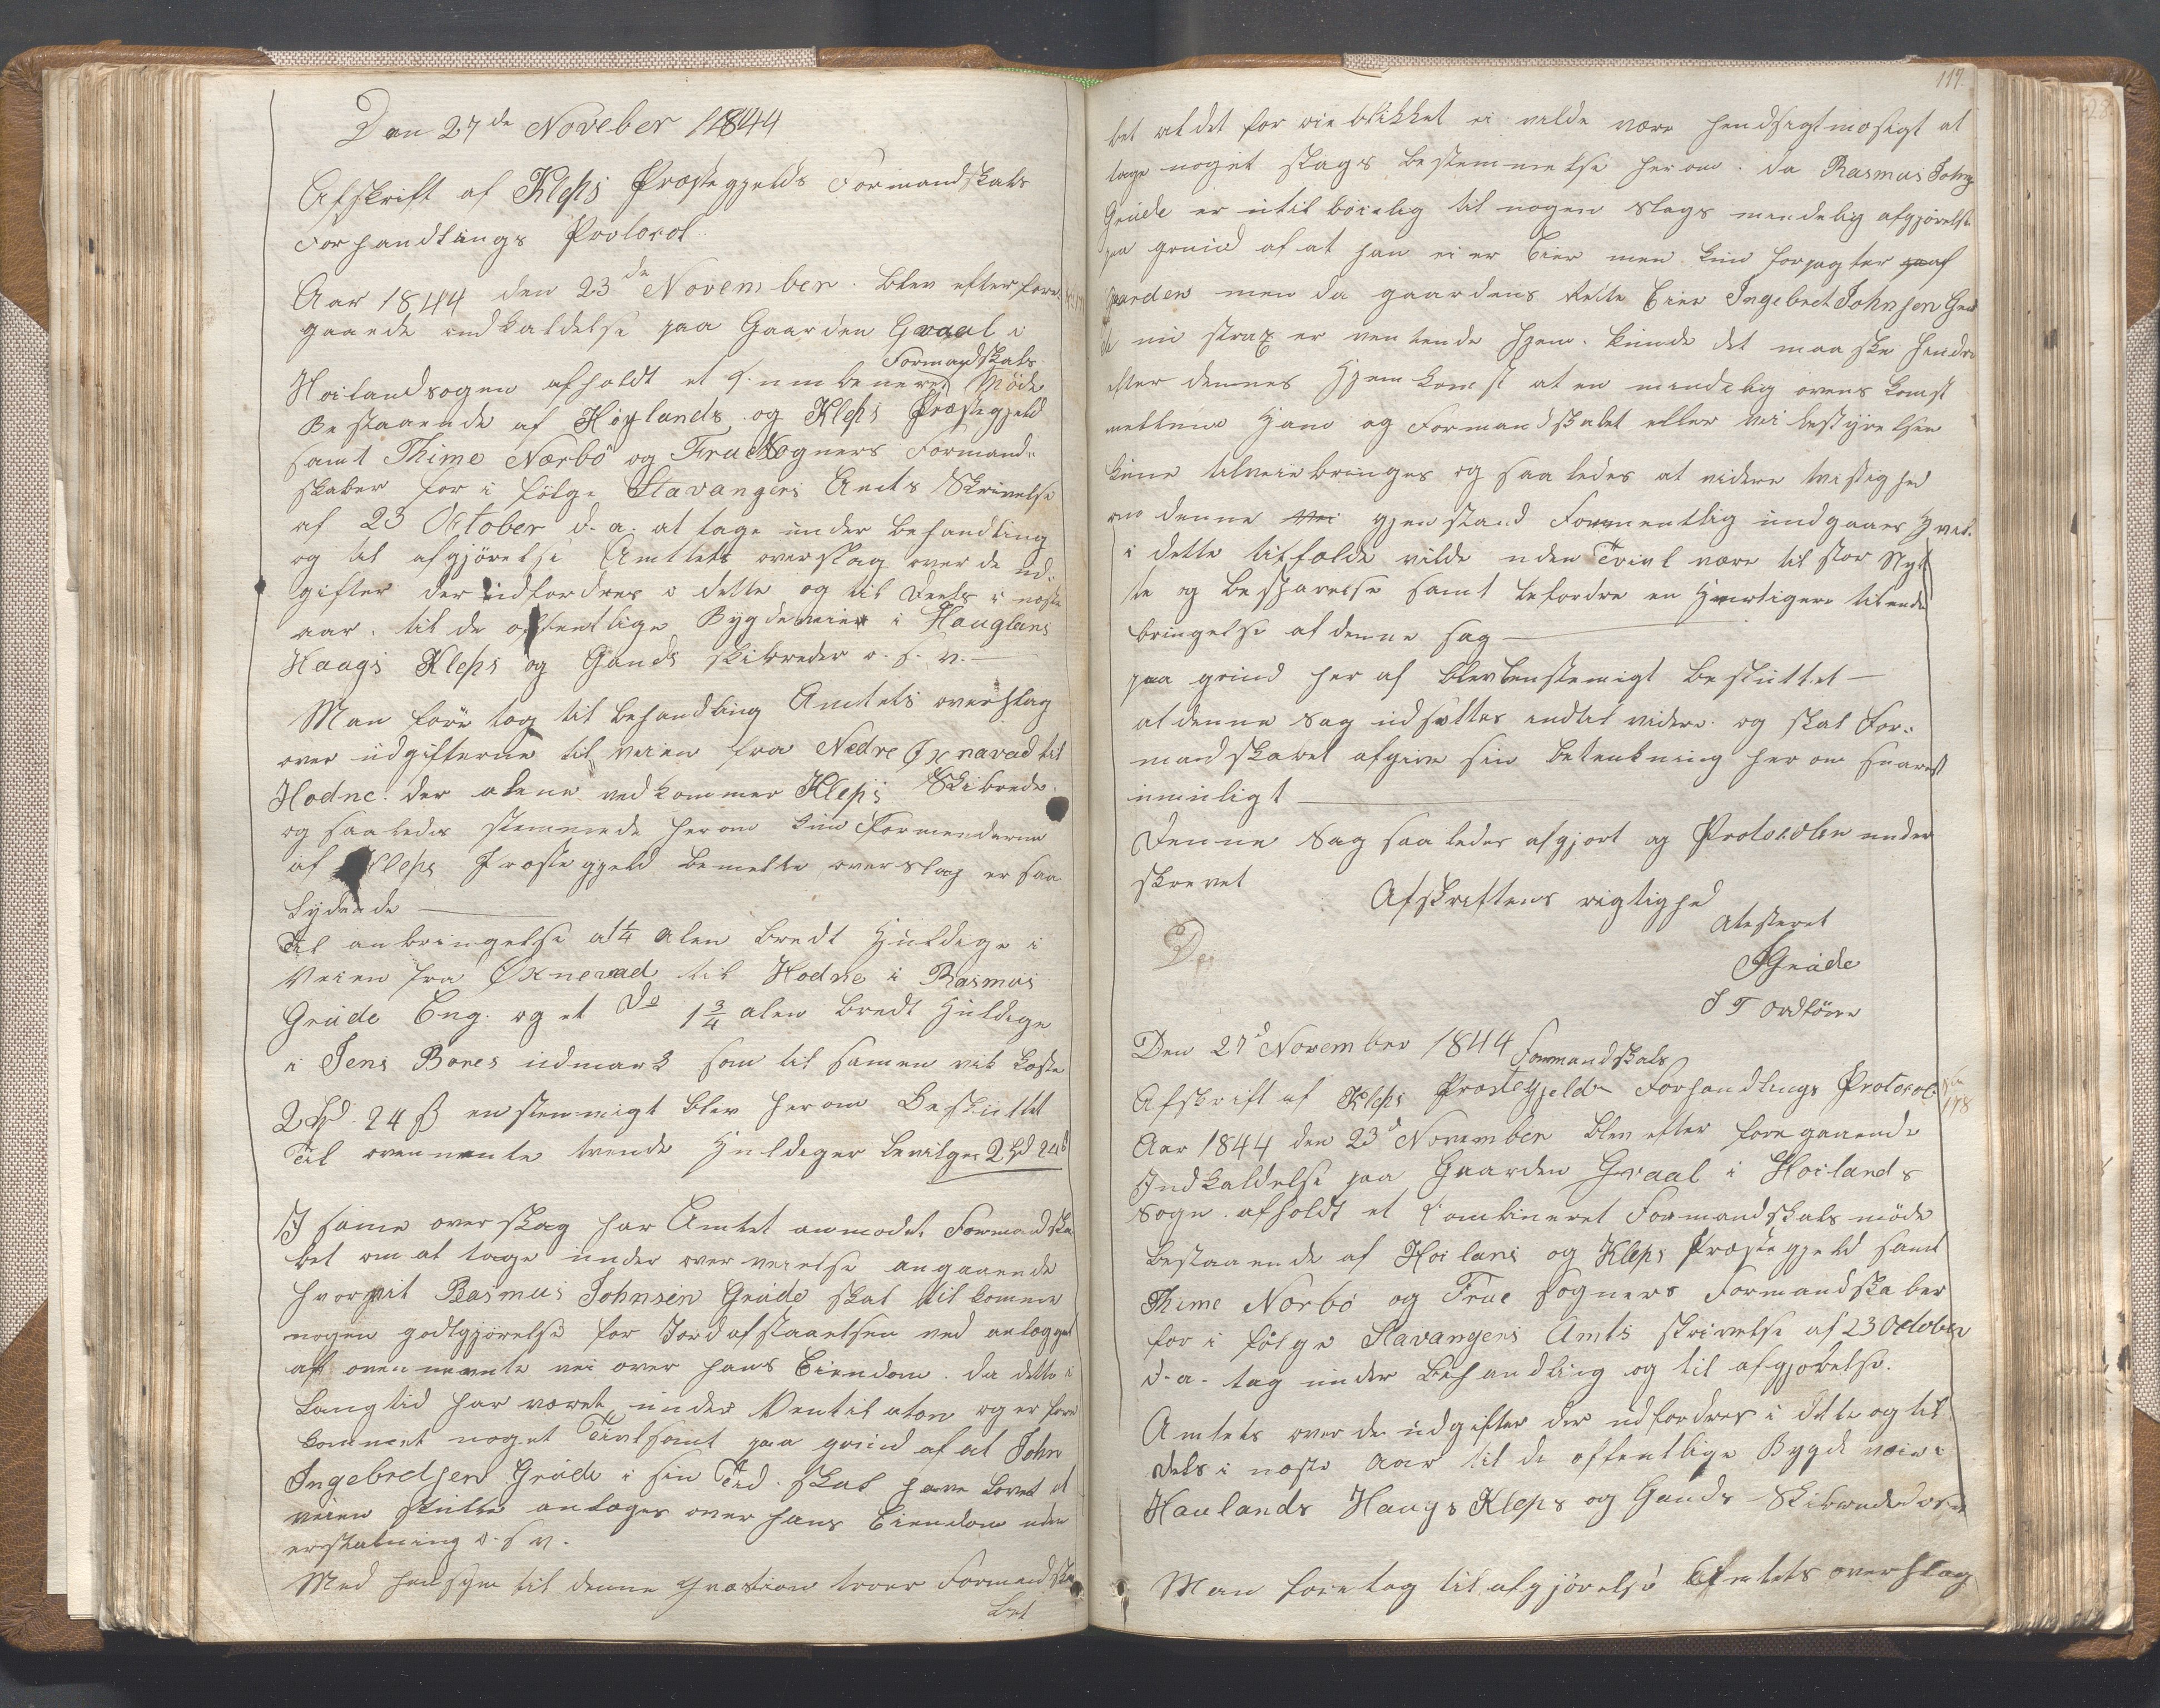 Den 27de Noveber 1844
Afskrift af Kleps Præstegjelds Formandskabs
Forhandlings Protocol.
Aar 1844 den 23de November. blev efter fore-
gaaende indkaldelse paa Gaarden Graal i
Formandskabs
Hoilandsogen afholdt et Møde
Bestaaende af Høylands og Kleps Præstegjeld
samt Thime Nærbö og Frue Sogners Formand-
skaber for i fölge Stavangers Amts Skrivelse
af 23 October d. a. at tage under behandling
og til afgjörelse Amttets overslag over de ud-
gifter der udfordres i dette og til Deels i næste
aar. til de offentlige Bygdeveier i Haugland
Haags Kleps og Gands skibreder o. s. v. —
Man före tog til behandling Amtets overslag
over udgifterne til veien fra Nedre Øxnavad til
Hodne. der alene vedkommer Kleps Skibrede.
og saaledes stemmede herom kun Formenderne
af Kleps Præstegjeld bemelte overslag er saa
lydende —
Til anbringelse af 1/4 alen bredt Hüldige i
Veien fra Øxnevad til Hodne i Rasmus
Grude Eng. og et Do 1 3/4 alen bredt Hüldige
i Jens Bores udmark som til samen vil koste
2 Spd. 24 ß enstemmigt blev herom Besluttet
Til ovennevnte tvende Huldiger bevilges 2 Spd 24 ß
I same overslag har Amtet anmodet Formandska
bet om at tage under overveielse angaaende
hvorvit Rasmus Johnsen Grude skal tilkomme
nogen godtgjörelse for Jordafstaaelsen ved anlægget
af ovennevnte vei over hans Eiendom. da dette i
Lang tid har været under Ventilation og er fore
kommet noget Tvivlsomt paa grund af at John
Ingebretsen Grude i sin Tid. skal have lovet at
veien skulle anlæges over hans Eiendom uden
erstatning o. s. v.
Med hensyn til denne Qvæstion troer Formandska
bet
119.
bet at det for oieblikket ei vilde være hensigtmæsigt at
tage noget slags bestemmelse herom. da Rasmus Johns
Grude er utilböielig til nogen slags mindelig afgjörelse
paa grund af at han ei er Eier men kun forpagter af
gaarden men da gaardens rette Eier Ingebret Johnsen Gru
de nu strax er ventende Hjem. kunde det maaske hende
efter dennes Hjemkomst at en mindelig overenskomst
mellem Ham og Formandskabet eller veibestyrelsen
kune tilveiebringes og saaledes at videre tvistighed
om denne gjenstand Formentlig undgaaes Hvil.
i dette tilfælde vilde uden Tvivl være til stor Nyt
te og Besparelse samt befordre en Hurtigere tilende
bringelse af denne sag —
paa grund her af blev enstemigt besluttet —
at denne Sag udsættes indtil videre. og skal For-
mandskabet afgive sin betenkning herom snarest
muuligt —
Denne Sag saaledes afgjort og Protocolen under
skrevet
Afskriftens rigtighed
Atesteret
Grude
De
Den 27d November 1844
Formandskabs
Afskrift af Kleps Præstegjelds Forhandlings Protocol:
178
Aar 1844 den 23d November blev efter foregaaende
Indkaldelse paa Gaarden Graal i Hoilands
Sogn. afholdt et Kombineret Formandskabs möde
bestaaende af Hoilans og Kleps Præstegjeld samt
Thime Norbö og Frue sogners Formandskaber
for i fölge Stavangers Amts skrivelse af 23 October
d. a. tag under behandling og til afgjörelse.
Amtets over de udgifter der udfordres i dette og til
dels i næste Aar til de offentlige Bygde veie i
Haulands Haugs Kleps og Gands Skibreder o s v
Man foretog til afgjörelse Amtets overslag